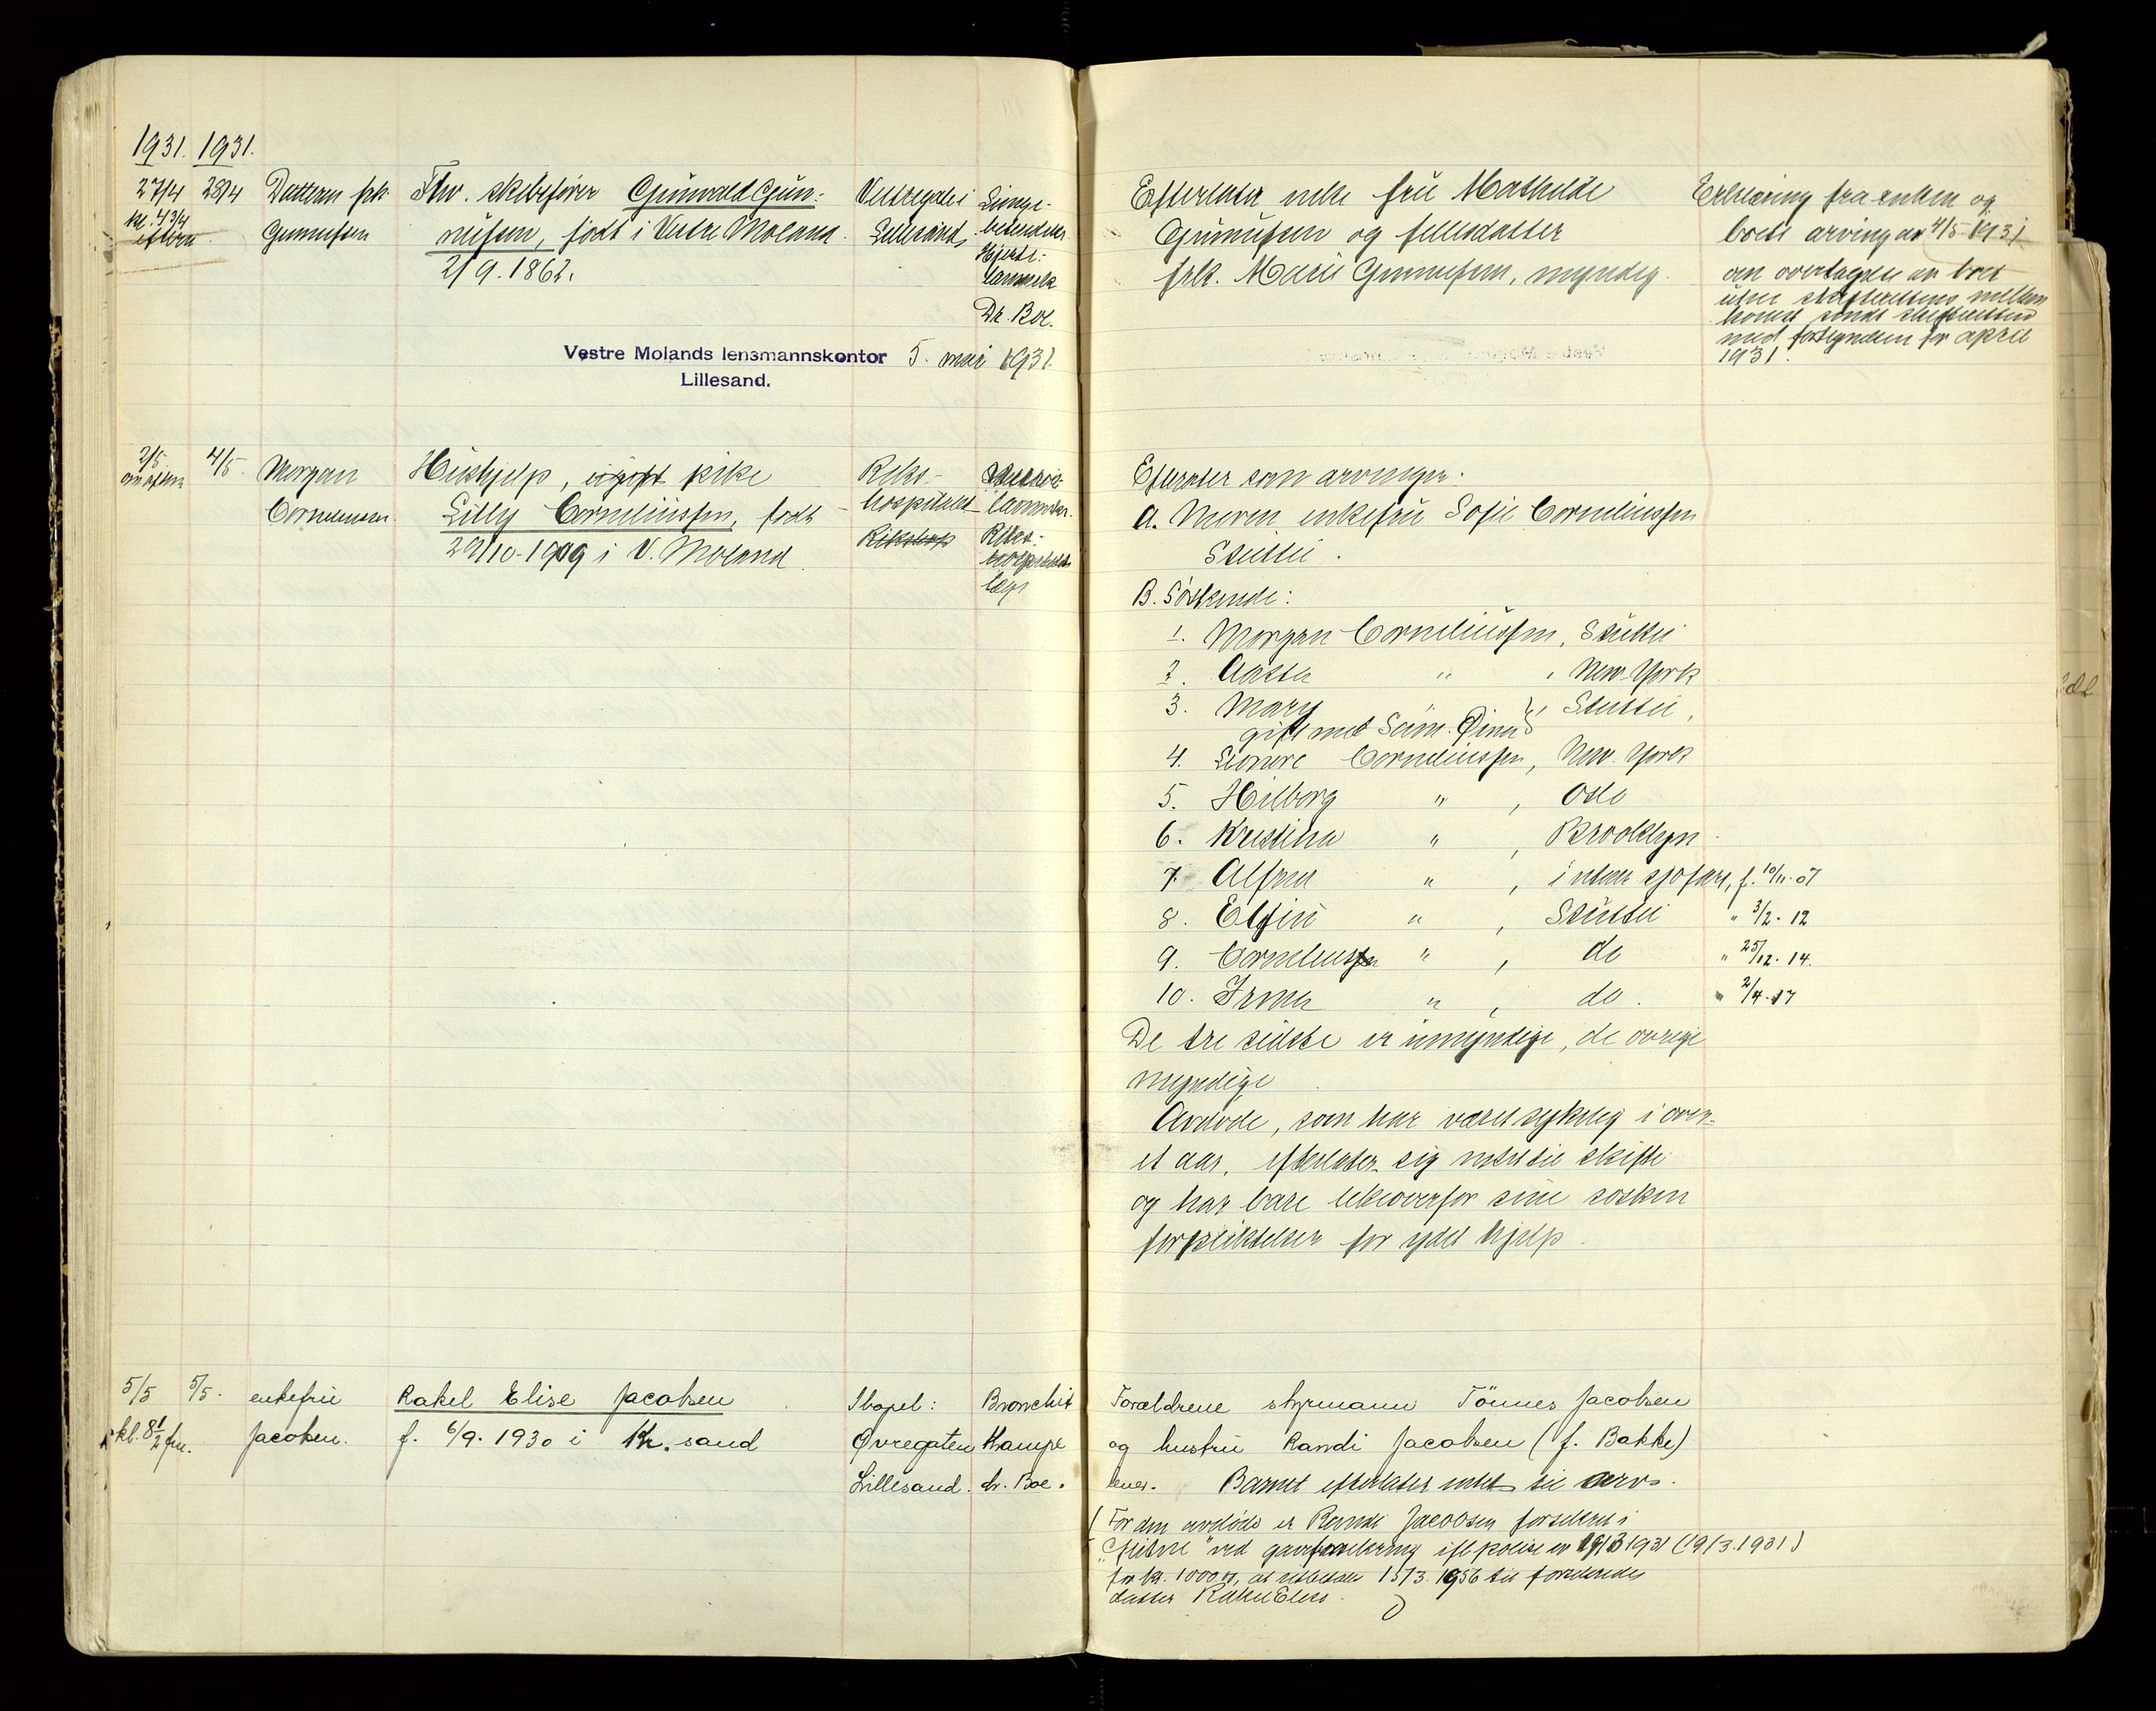 1931. 1931.
27/4 28/4 Datteren frk. Fhv. skibsfører Gunvald Gun-
kl. 4 3/4 Gunnufsen nufsen, født i Vestre Moland.
eftm. 2/9. 1862.
Vestregate i
Lillesand
Lunge-
betendelse
Hjerte-
lammelse
Dr. Boe.
Vestre Molands lensmannskontor 5. mai 1931.
Lillesand.
2/5 4/5 Morgan Hushjelp, ugift pike
om aftenen Corneliussen Lilly Corneliussen, født
29/10-1909 i V. Moland.
Riks-
hospitalet
lammelse.
Riks-
hospitalets
læge
5/5 5/5. enkefru Rakel Elise Jacobsen
kl. 8 1/2 fm. Jacobsen. f. 6/9. 1930 i Kr.sand
Øvregaten
Lillesand.
Bronchit
Krampe
dr. Boe.
Efterlater enke fru Mathilde
Gunnufsen og fellesdatter
frk. Marie Gunnufsen, myndig.
Erklæring fra enken og
boets arving av 4/5 1931
om overtagelse av boet
uten skifterettens mellem-
komst sendt skifteretten
med fortegnelsen for april
1931.
Efterlater som arvinger:
A. Moren enkefru Sofie Corneliussen
B. Søskende:
1. Morgan Corneliussen,
2. " , New-York
3. Mary " ,
gift med
4. Corneliussen, New-York
5. Hilborg " , Oslo
6. Kristina " , Brooklyn
7. Alfred " , i uten sjøfart, f. 10/11-07
8. " , " 3/2. 12
9. Cornelius " , do " 25/12. 14.
10. Irma " , do. " 2/4-17
De tre sidste er umyndige, de øvrige
myndige
Avdøde, som har været sykelig i over
et aar, efterlater sig intet til skifte
og har bare likeoverfor sine søsken
forpliktelser for ydet hjelp.
Forældrene styrmann Tönnes Jacobsen
og hustru Randi Jacobsen (f. Bakke)
lever. Barnet efterlater intet til arv.
( For den avdøde er Randi Jacobsen forsikret i
ved 19/3 1931 (19/3.1931)
for kr. 1000.00, at utbetale 15/3. 1956 til forældrenes
datter Rakel Elise.